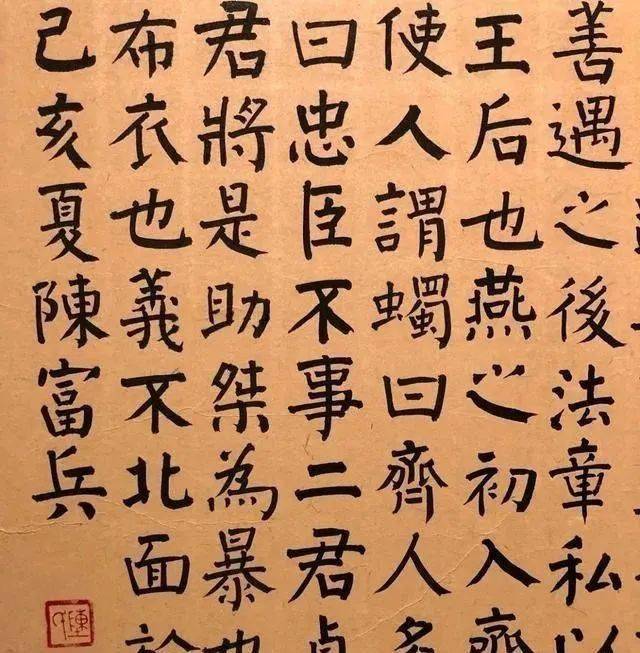 善遇之後法章私以
王后也燕之初入齊
使人謂蠋曰齊人多
曰忠臣不事二君貞
君將是助桀為暴也
布衣也義不北面於
己亥夏陳富兵